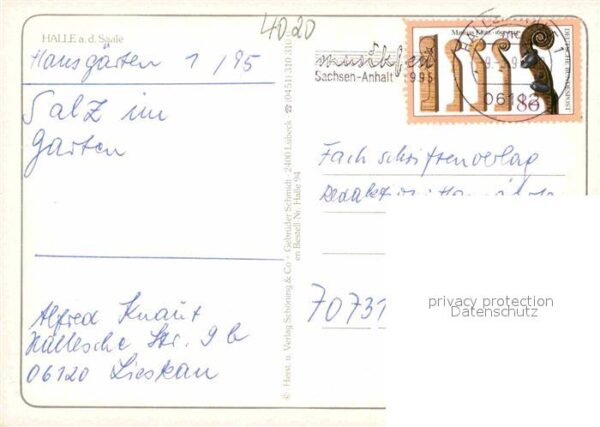 HALLE a. d. Saale
4020
Hausgärten 1/95
Salz im
Garten
Alfred Knaut
Hallesche Str. 9b
06120 Lieskau
© Herst. u. Verlag Schöning & Co · Gebrüder Schmidt · 2400 Lübeck · ☎ (0451) 310 310
Bestell-Nr. Halle 94
musikfest
Sachsen-Anhalt 1995
HALLE
06112
DEUTSCHE BUNDESPOST
80
Fachschriftenverlag
Redaktion
70731
privacy protection
Datenschutz